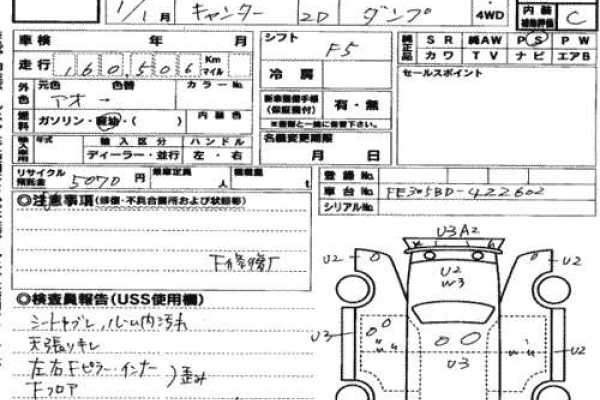 1/1月 キャンター 2D ダンプ 4WD 内装 補助評価 C
車検 年 月 シフト F5 純正品 SR 純AW PS PW
走行 160,506 Km マイル カワ TV ナビ エアB
外色 元色 色替 カラーNo. 冷房 セールスポイント
アオー
燃料 ガソリン・軽油・( ) 内装色 新車整備手帳(保証書付) 有・無
輸入車用 年式 輸入区分 ハンドル
ディーラー・並行 左・右 名義変更期限
月 日
リサイクル預託金 5070円 乗車定員 人 積載量 t 登録No.
◎注意事項(修復・不具合箇所および状態等) 車台No. FE305BD-422602
シリアルNo.
U3A2
U2 U2
U2 W3
◎検査員報告(USS使用欄)
シートヤブレ,ルーム内汚れ
U3
天張りキレ
U3 U2
左右Fピラー・インナー 歪み
Fフロア